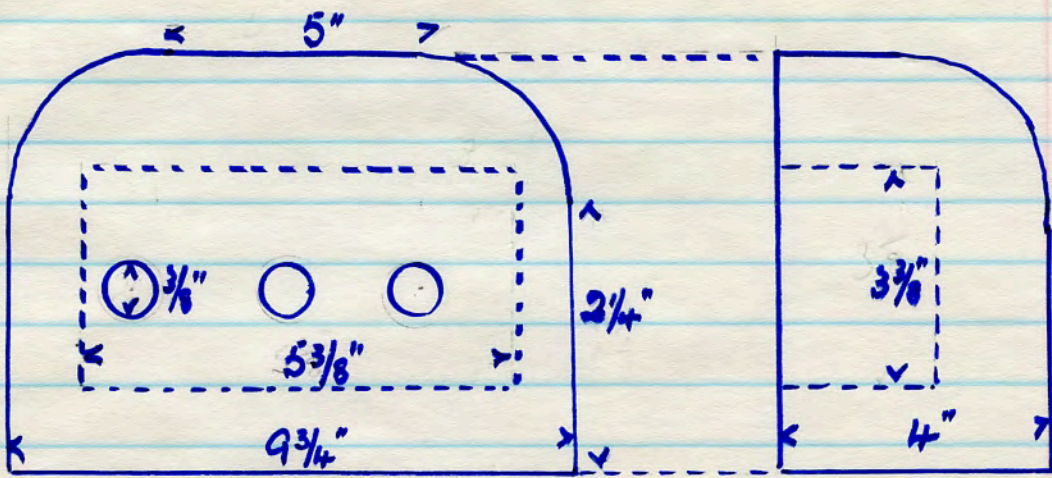 5"
3/8"
5 3/8"
2 1/4"
9 3/4"
3 3/8"
4"